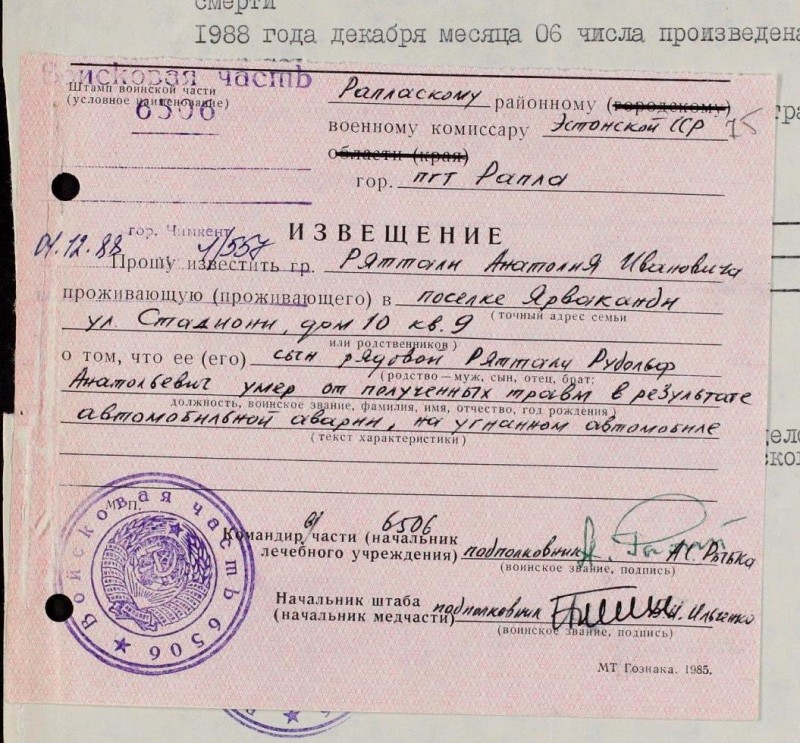 смерти
1988 года декабря месяца 06 числа произведена
Войсковая часть
Штамп воинской части
(условное наименование)
6506
Рапласкому районному (городскому)
военному комиссару Эстонской ССР 75
области (края)
гор. пгт Рапла
гор. Чимкент
01.12.88 1/557
ИЗВЕЩЕНИЕ
Прошу известить гр. Ряттали Анатолия Ивановича
проживающую (проживающего) в поселке Ярваканди
(точный адрес семьи
ул. Стадиони, дом 10 кв. 9
или родственников)
о том, что ее (его) сын рядовой Ряттали Рудольф
(родство — муж, сын, отец, брат;
Анатольевич умер от полученных травм в результате
должность, воинское звание, фамилия, имя, отчество, год рождения)
автомобильной аварии, на угнанном автомобиле
(текст характеристики)
М. П.
Командир в/ части (начальник 6506
лечебного учреждения) подполковник
(воинское звание, подпись)
Начальник штаба
(начальник медчасти) подполковник В.И. Ильченко
(воинское звание, подпись)
Войсковая часть 6506
МТ Гознака. 1985.